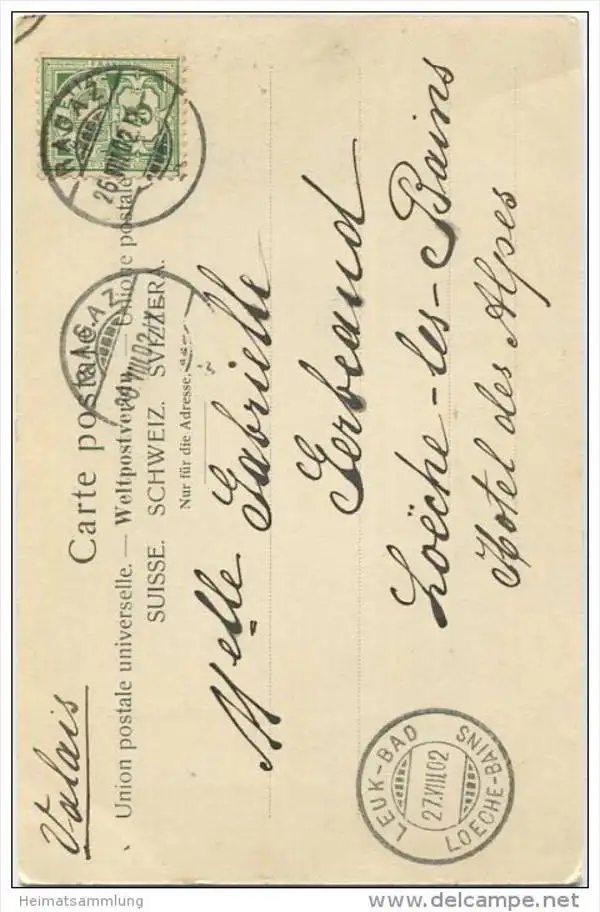 Carte postale.
Union postale universelle. — Weltpostverein. — Unione postale
SUISSE. SCHWEIZ. SVIZZERA.
Nur für die Adresse.
RAGAZ
26.VIII.02.IX
RAGAZ
Melle Gabrielle
Gerbeaud
Loëche-les-Bains
Hotel des Alpes
Valais
LEUK-BAD
27.VIII.02
LOECHE-BAINS
Heimatsammlung
delcampe.net